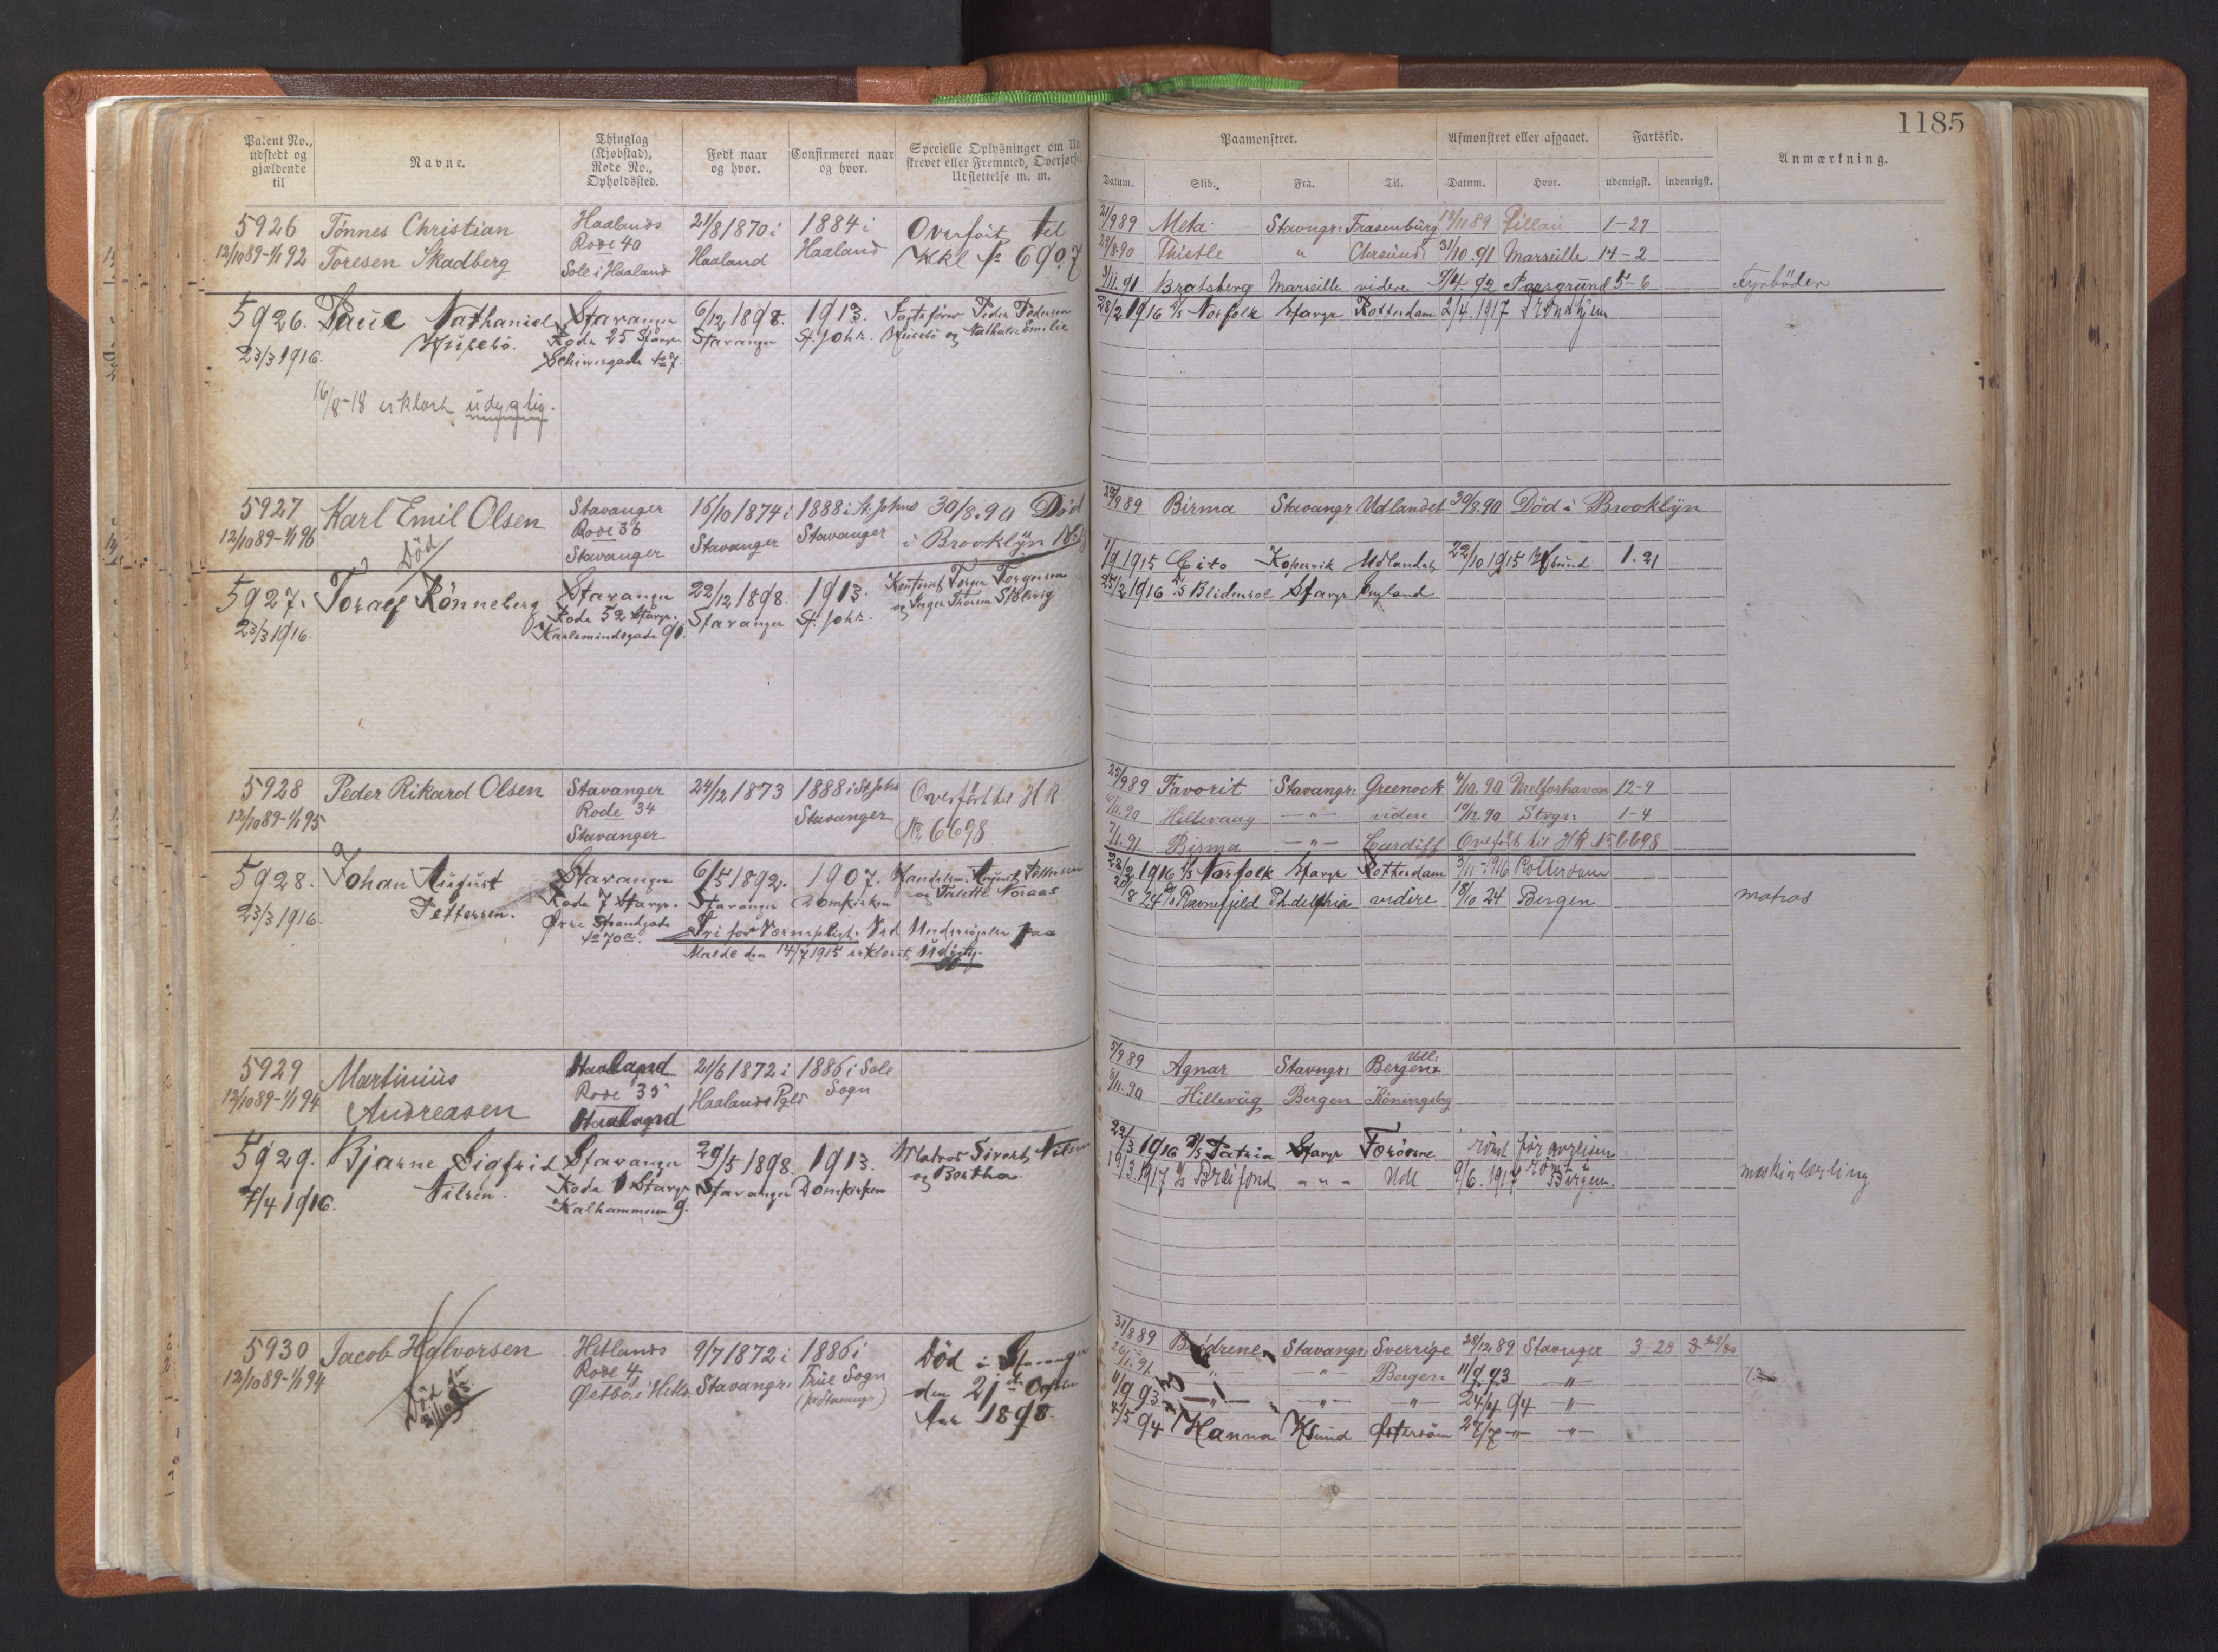 1185
Patent No., udstedt og gjældende til
Navne.
Thinglag (Kjøbstad), Rode No., Opholdssted.
Født naar og hvor.
Confirmeret naar og hvor.
Specielle Oplysninger om Ud
strevet eller Fremmed, Overførsel
Udslettelse m. m.
Paamønstret.
Afmønstret eller afgaaet.
Fartstid.
Anmærkning.
Datum. Skib. Fra. Til. Datum. Hvor. udenrigsk. indenrigsk.
5926 Tønnes Christian Haalands 21/8 1870 i 1884 i Overført til
12/10 89-1/1 92 Toresen Skadberg Rode 40 Haaland Haaland № 6907
Sole i Haaland
21/9 89 Meta Stavngr: 13/11 89 Pillau 1-27
29/8 90 Thistle " Chrsund: 31/10.91 Marseille 14-2
3/11.91 Bratsberg Marseille videre 9/4.92 Porsgrund 5-6 Fyrbøder
5926. Paul Nathaniel Stavanger 6/12 1898. 1913. Peder Pedersen
23/3 1916. Rode 25 Stavgr. Stavanger St. Joh. og Nathalie Emilie
16/8-18 erklært udyglig.
28/2 1916 D/S Norfolk Stavgr Rotterdam 2/4.1917 Trondhjem
5927 Karl Emil Olsen Stavanger 16/10 1874 i 1888 i St. Johns 30/8.90 Død
12/10 89-1/1 96 Død Rode 36 Stavanger Stavanger i Brooklÿn
Stavanger
89 Birma Stavangr Udlandet 30/8.90 Død i Brooklÿn
5927. Toralf Rönneberg Stavanger 22/12 1898. 1913.
23/3 1916. Rode 52 Stavgr. Stavanger St. Joh.
1/9 1915 Cito Kopervik Udlandet 22/10 1915 1.21
25/2 1916 Stavgr England
5928 Peder Rikard Olsen Stavanger 24/12 1873 1888 i St. Johs Overført til HR
12/10 89-1/1 95 Rode 34 Stavanger № 6698
Stavanger
25/9 89 Favorit Stavangr: Greenock 4/10.90 12-9
Hillevaag -"- videre 10/12.90 Stvgr: 1-4
7/1.91 Birma -"- Cardiff Overført til HR № 6698
5928. Johan August Stavanger 6/5 1892. 1907. Handelsm. August Pettersen
23/3 1916. Pettersen. Rode 7 Stavgr. Stavanger Domkirken
Øvre Strandgade № 70a. Fri for Værnepligt. Ved Undersøgelse paa
Molde den 14/7 1915 erklæret udygtig.
1916 D/S Norfolk Stavgr Rotterdam 3/11-1916 Rotterdam
20/8 24 Ravnefjeld videre 18/10 24 Bergen matros
5929 Martinius Haaland 21/6 1872 i 1886 i Sole
12/10 89-1/1 94 Andreasen Rode 35 Haalands Pgld Sogn
Haaland
5/9 89 Agnar Stavngr: Bergen
8/11.90 Hillevåg Bergen Köningsbrg
5929. Bjarne Sigfrid Stavanger 29/5 1898. 1913. Matros Sivert Nilsen
7/4 1916. Nilsen. Rode 1 Stavgr Stavanger Domkirken og Bertha.
Kalhammeren 9.
22/3 1916 D/S Patria Stavgr
19/3.1917 -"- Udl 9/6.1917 Bergen. maskinlærling
5930 Jacob Halvorsen Hetlands 9/7 1872 i 1886 i Død i Stavanger
12/10 89-1/1 94 Rode 4 Stavangr: Frue Sogn den 21de Octbr
Østbø i Hetld Aar 1898.
31/8 89 Brødrene Stavangr: Sverrige 28/12 89 Stavnger 3-28
" Bergen 11/9.93 -"-
11/9 93 -"- -"- -"- 24/4 94 -"-
4/5 94 Hanna Østersöen 27/7 -"- -"-